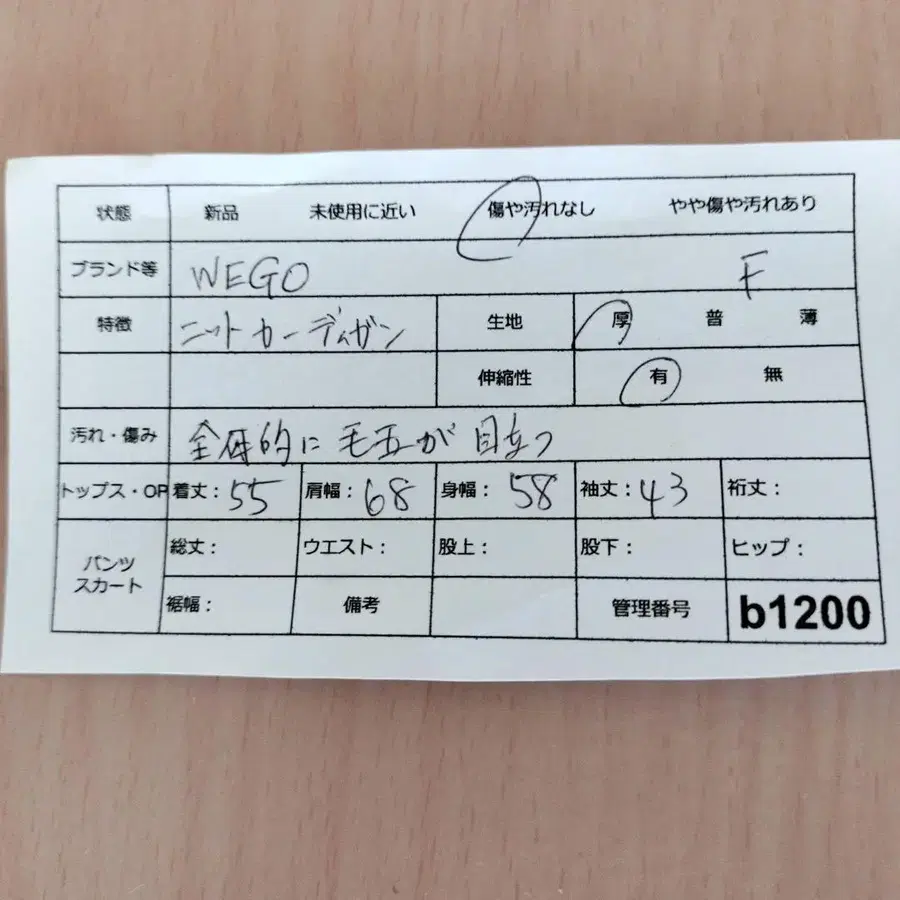 状態 新品 未使用に近い 傷や汚れなし やや傷や汚れあり
ブランド等 WEGO F
特徴 ニットカーディガン 生地 厚 普 薄
伸縮性 有 無
汚れ・傷み 全体的に毛玉が目立つ
トップス・OP 着丈：55 肩幅：68 身幅：58 袖丈：43 裄丈：
パンツ スカート 総丈： ウエスト： 股上： 股下： ヒップ：
裾幅： 備考 管理番号 b1200